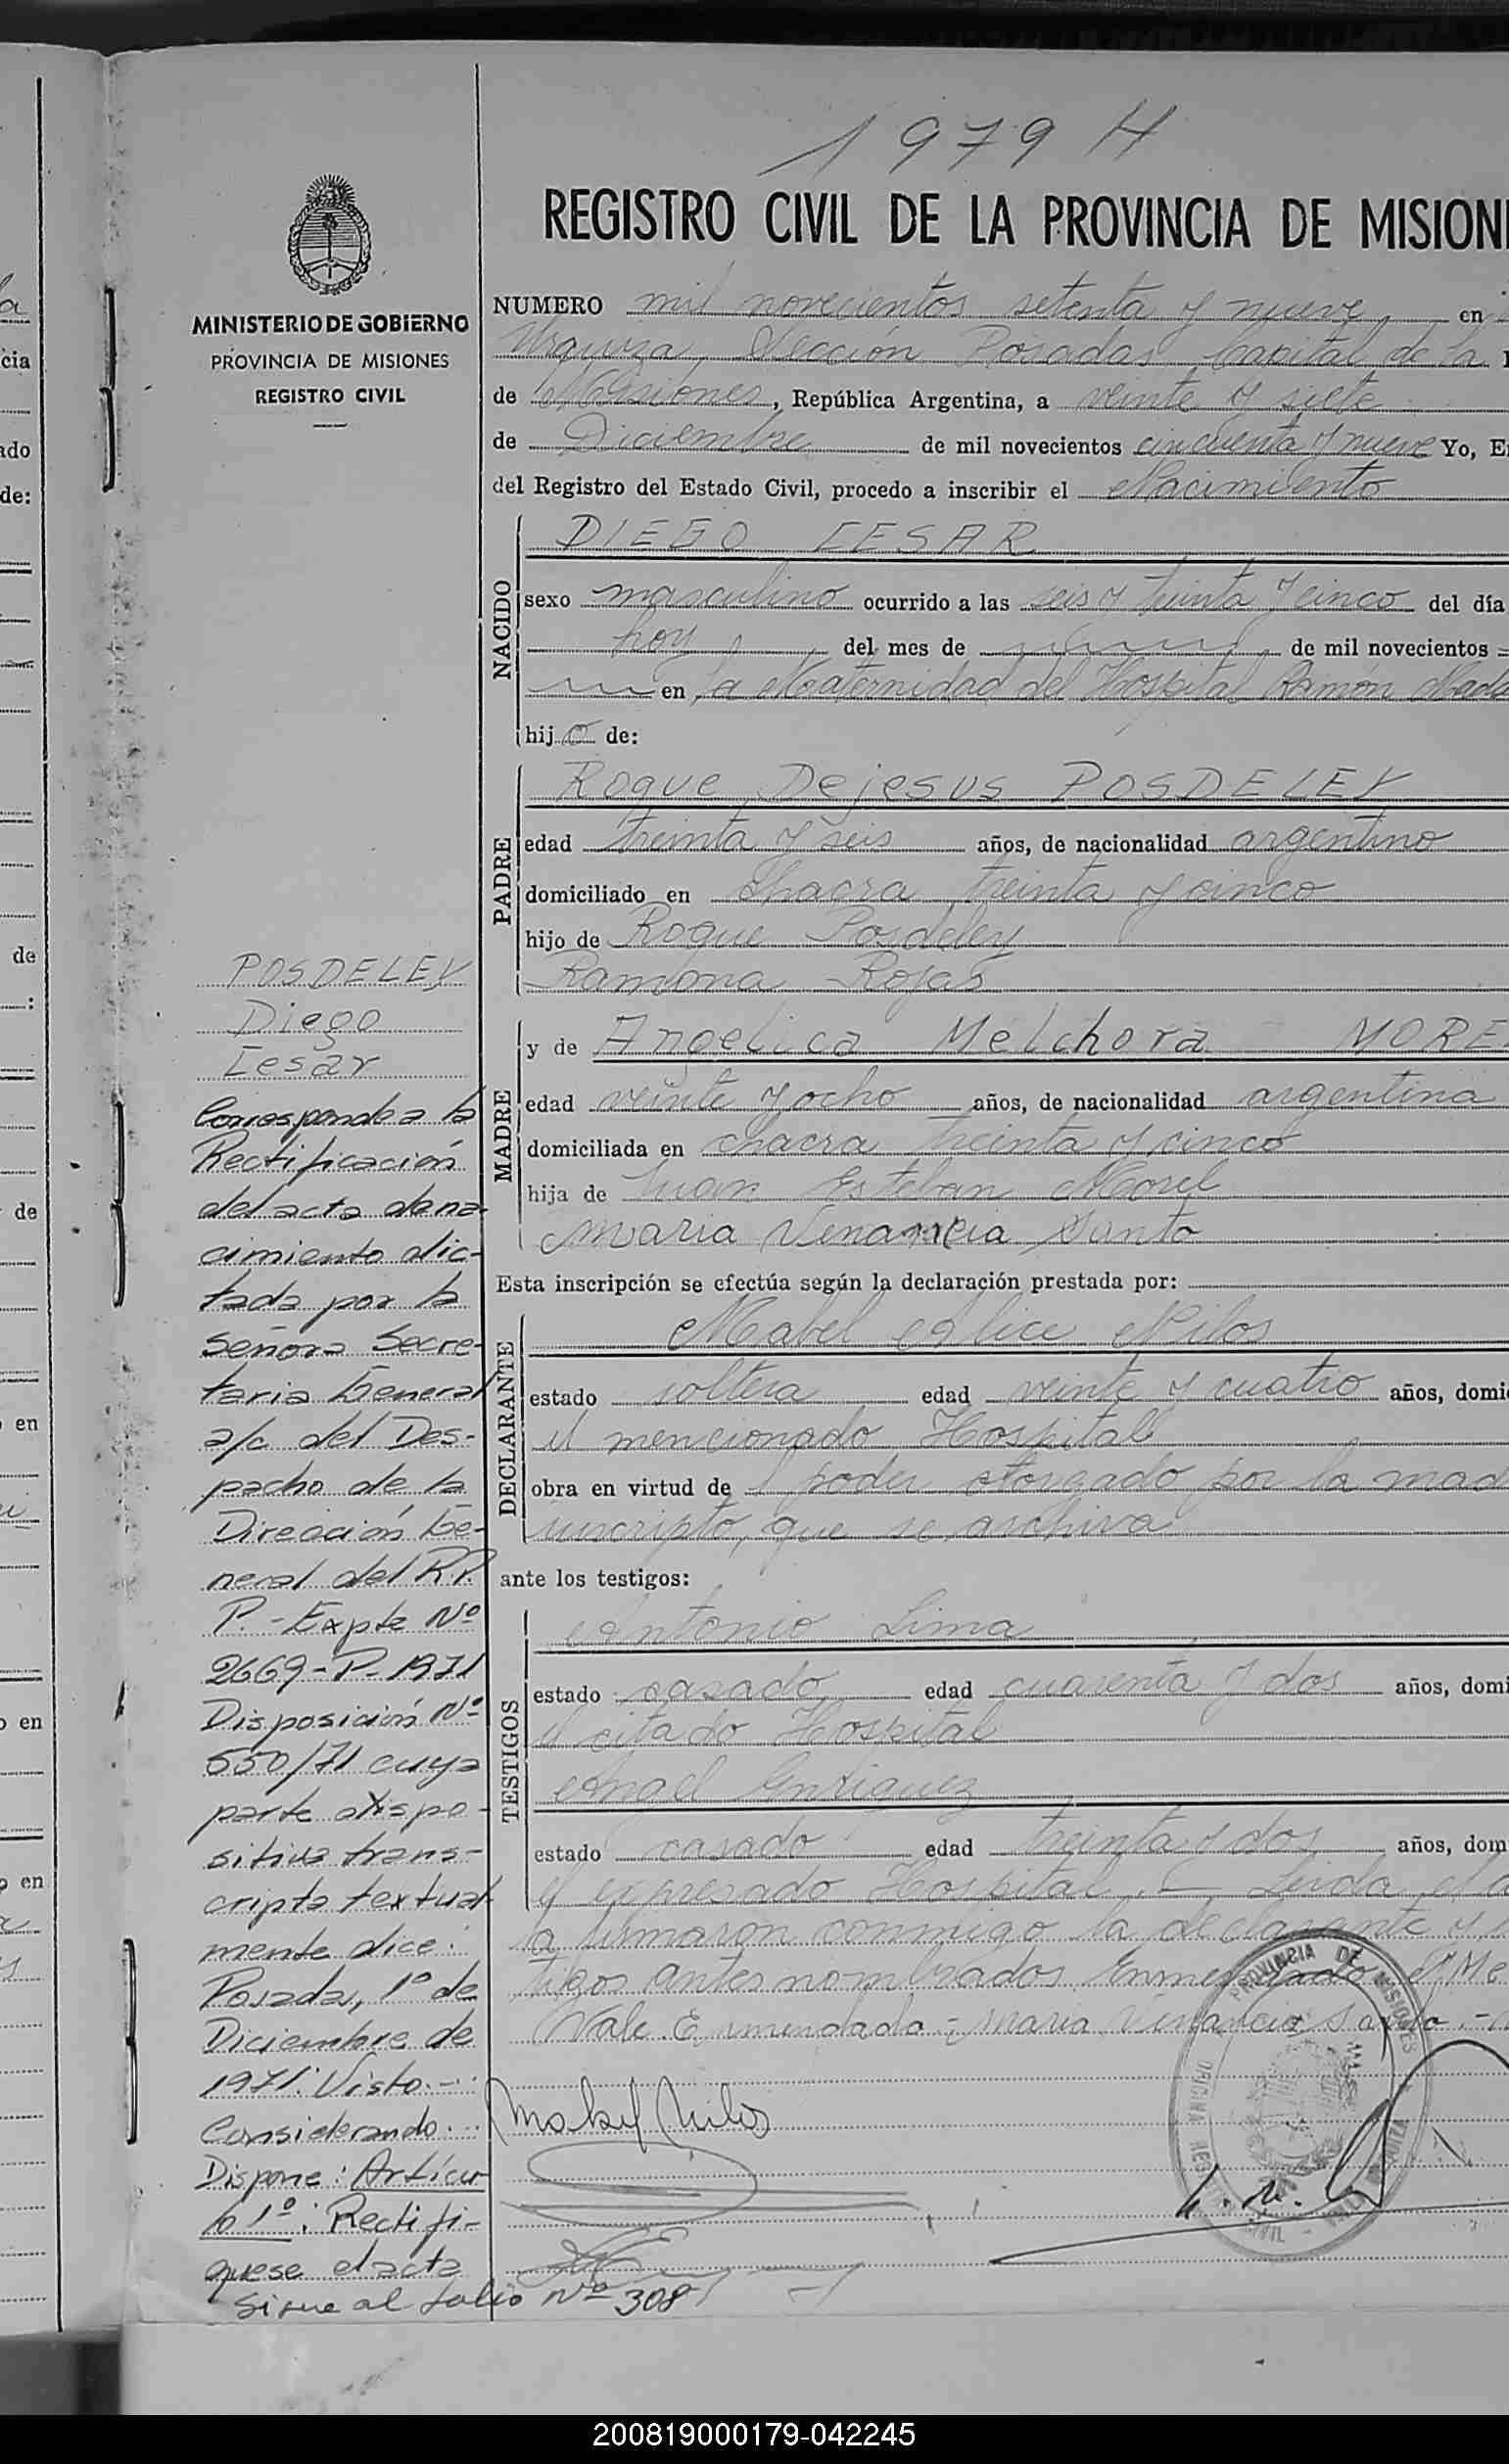 1979 H
REGISTRO CIVIL DE LA PROVINCIA DE MISION
MINISTERIO DE GOBIERNO
PROVINCIA DE MISIONES
REGISTRO CIVIL
NUMERO mil novecientos setenta y nueve en
Urquiza, Sección Posadas, Capital de la
de Misiones, República Argentina, a veinte y siete
de Diciembre de mil novecientos cincuenta y nueve Yo, E
del Registro del Estado Civil, procedo a inscribir el Nacimiento
NACIDO
DIEGO CESAR
sexo masculino ocurrido a las seis y treinta y cinco del día
hoy del mes de de mil novecientos
en la Maternidad del Hospital Ramón Mada
hijo de:
PADRE
Roque Dejesus POSDELEY
edad treinta y seis años, de nacionalidad argentino
domiciliado en chacra treinta y cinco
hijo de Roque Posdeley
Ramona Rojas
MADRE
y de Angelica Melchora MORE
edad veinte y ocho años, de nacionalidad argentina
domiciliada en chacra treinta y cinco
hija de Juan Esteban Morel
Maria Venancia Santo
Esta inscripción se efectúa según la declaración prestada por:
DECLARANTE
Mabel Alice Nilos
estado soltera edad veinte y cuatro años, domi
el mencionado Hospital
obra en virtud de poder otorgado por la mad
inscripto, que se archiva
ante los testigos:
TESTIGOS
Antonio Lima
estado casado edad cuarenta y dos años, domi
el citado Hospital
Angel Enriquez
estado casado edad treinta y dos años, dom
el expresado Hospital.- Leida el a
la firmaron conmigo la declarante y
tigos antes nombrados Enmendado
Vale. Enmendado = Maria Venancia Santo.-
PROVINCIA DE MISIONES
POSDELEY
Diego
Cesar
Corresponde a la
Rectificación
del acta de na-
cimiento dic-
tada por la
señora Secre-
taria General
a/c del Des-
pacho de la
Dirección Ge-
neral del R.P.
P.- Expte Nº
2669-P-1971
Disposición Nº
550/71 cuya
parte dispo-
sitiva trans-
cripta textual
mente dice:
Posadas, 1º de
Diciembre de
1971: Visto.-
Considerando...
Dispone: Artícu
lo 1º: Rectifi-
quese el acta
Sigue al folio Nº 308
200819000179-042245